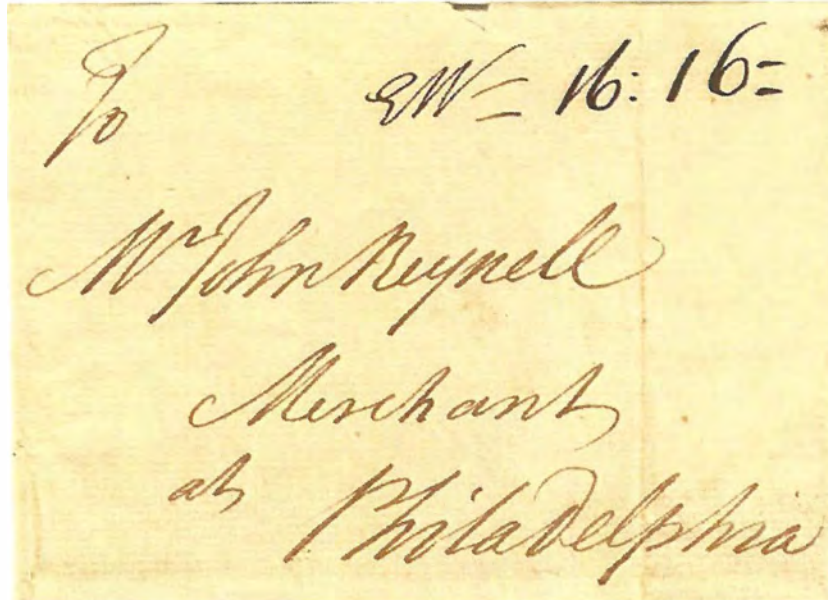 To
3W= 16:16=
Mr John Reynell
Merchant
at Philadelphia